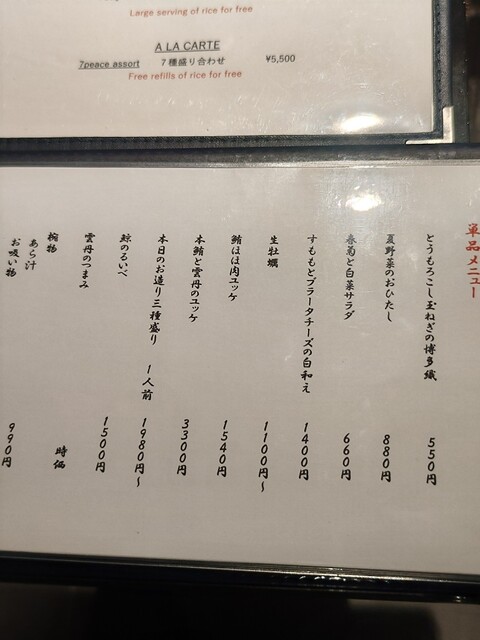 Large serving of rice for free
A LA CARTE
7peace assort 7種盛り合わせ ¥5,500
Free refills of rice for free
単品メニュー
とうもろこし玉ねぎの博多織 550円
夏野菜のおひたし 880円
春菊と白菜サラダ 660円
すももとブラータチーズの白和え 1400円
生牡蠣 1100円〜
鮪ほほ肉ユッケ 1540円
本鮪と雲丹のユッケ 3300円
本日のお造り三種盛り 1人前 1980円〜
鯨のるいべ 1500円
雲丹のつまみ 時価
椀物
あら汁
お吸い物 990円